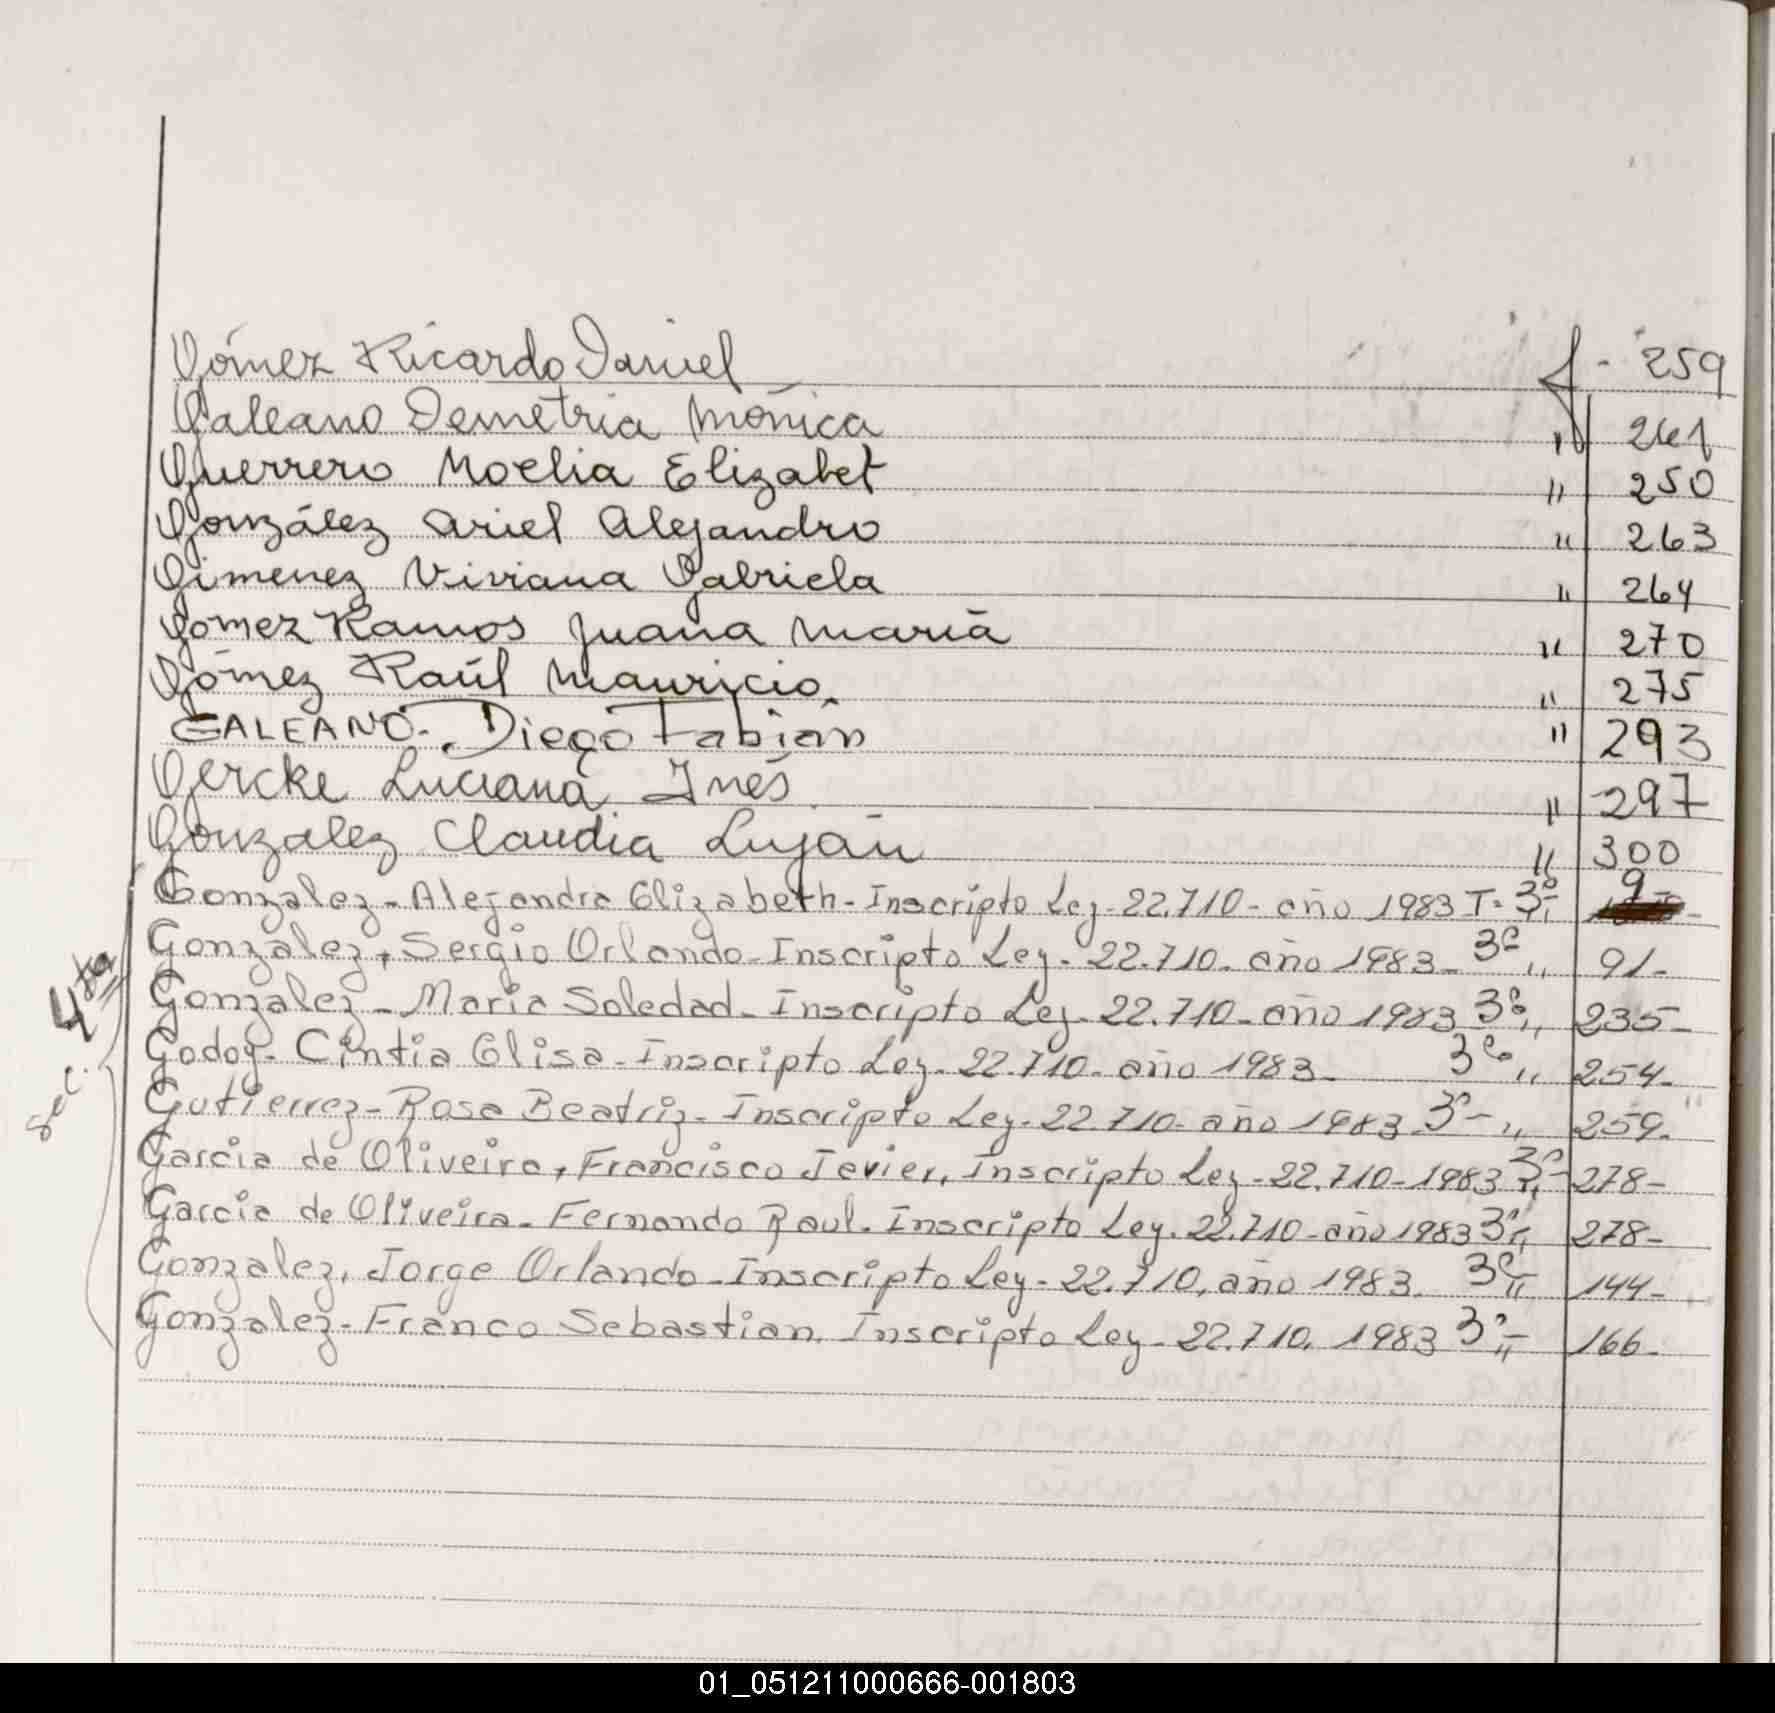 Gómez Ricardo Daniel f - 259
Galeano Demetria Mónica " 261
Guerrero Noelia Elizabet " 250
González Ariel Alejandro " 263
Gimenez Viviana Gabriela " 264
Gomez Ramos Juana María " 270
Gómez Raúl Mauricio. " 275
GALEANO. Diego Fabián " 293
Gercke Luciana Inés " 297
Gonzalez Claudia Luján " 300
Gonzalez - Alejandra Elizabeth - Inscripto Ley - 22.710 - año 1983 T. 3º " 9
Gonzalez, Sergio Orlando - Inscripto Ley - 22.710 - año 1983 - 3º " 91 -
Gonzalez - Maria Soledad - Inscripto Ley - 22.710 - año 1983 3º " 235 -
Godoy - Cintia Elisa - Inscripto Ley - 22.710 - año 1983 - 3º " 254 -
Gutierrez - Rosa Beatriz - Inscripto Ley - 22.710 - año 1983 3º - " 259 -
Garcia de Oliveira, Francisco Javier, Inscripto Ley - 22.710 - 1983 3º " 278 -
Garcia de Oliveira - Fernando Raul - Inscripto Ley - 22.710 - año 1983 3º " 278 -
Gonzalez, Jorge Orlando - Inscripto Ley - 22.710, año 1983. 3º " 144 -
Gonzalez - Franco Sebastian. Inscripto Ley - 22.710. 1983 3º " 166 -
Sec. 4ta
01_051211000666-001803